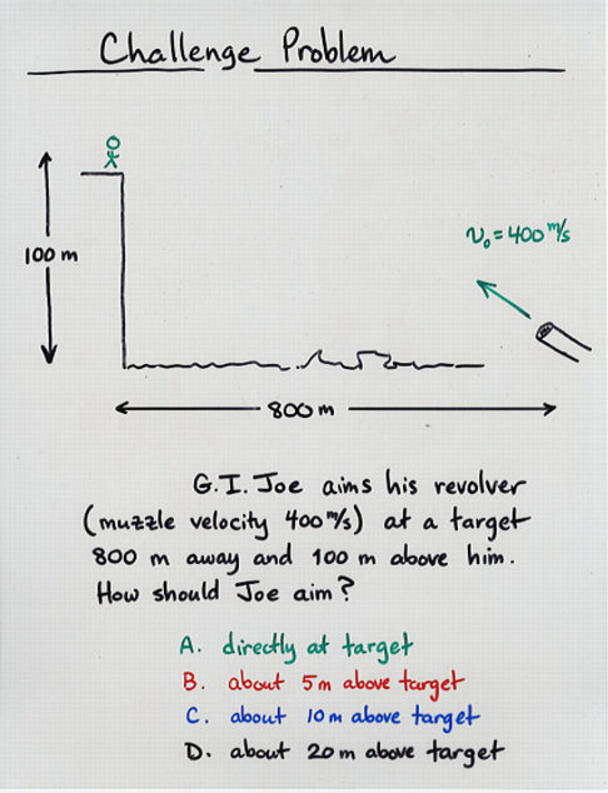 Challenge Problem
v₀ = 400 m/s
100 m
800 m
G.I. Joe aims his revolver
(muzzle velocity 400 m/s) at a target
800 m away and 100 m above him.
How should Joe aim?
A. directly at target
B. about 5m above target
C. about 10m above target
D. about 20m above target